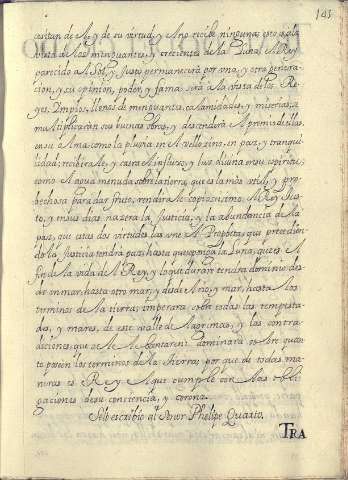 145
y de su virtud, y si no recibe ninguna: esto es a la
vista de los minguantes, y crecientes de la Luna. el Rey
parecido al Sol, y Justo permanecerá por una, y otra generacion,
y su opinion, poder, y fama: será a la vista de los Reyes
Impios: llenos de menguantes, calamidades, y miserias, e
multiplicaran sus buenas obras, y descenderá el premio de ellas
en su Alma como la pluvia en el vellozino, en paz, y tranquilidad;
recibirá el, y casta influxos, y luz divina en su espiritu,
como el agua menuda sobre la tierra, que es la mas util, y provechosa
para dar fruto, rendirá el copiosissimo el Rey Justo,
y en sus dias nazerá la Justicia, y la abundancia de la
paz, que estas dos virtudes las une el Propheta, que procediendo
de la Justicia tendrá paz, hasta que la Luna, que es el
fin de la vida de el Rey, y lo que duran tendrá dominio desde
un mar, hasta otro mar, y desde el Rio, y mar, hasta los
terminos de la tierra; imperará sobre todas las tempestades,
y mares, de este valle de lagrimas, y las contradiciones,
que se le dominará sobre quanto
poseen los terminos de la tierra, porque de todas maneras
es Rey el que cumple con las obligaciones
de su conciencia, y corona.
Assi lo escribio al Señor Phelipe Quarto.
TRA